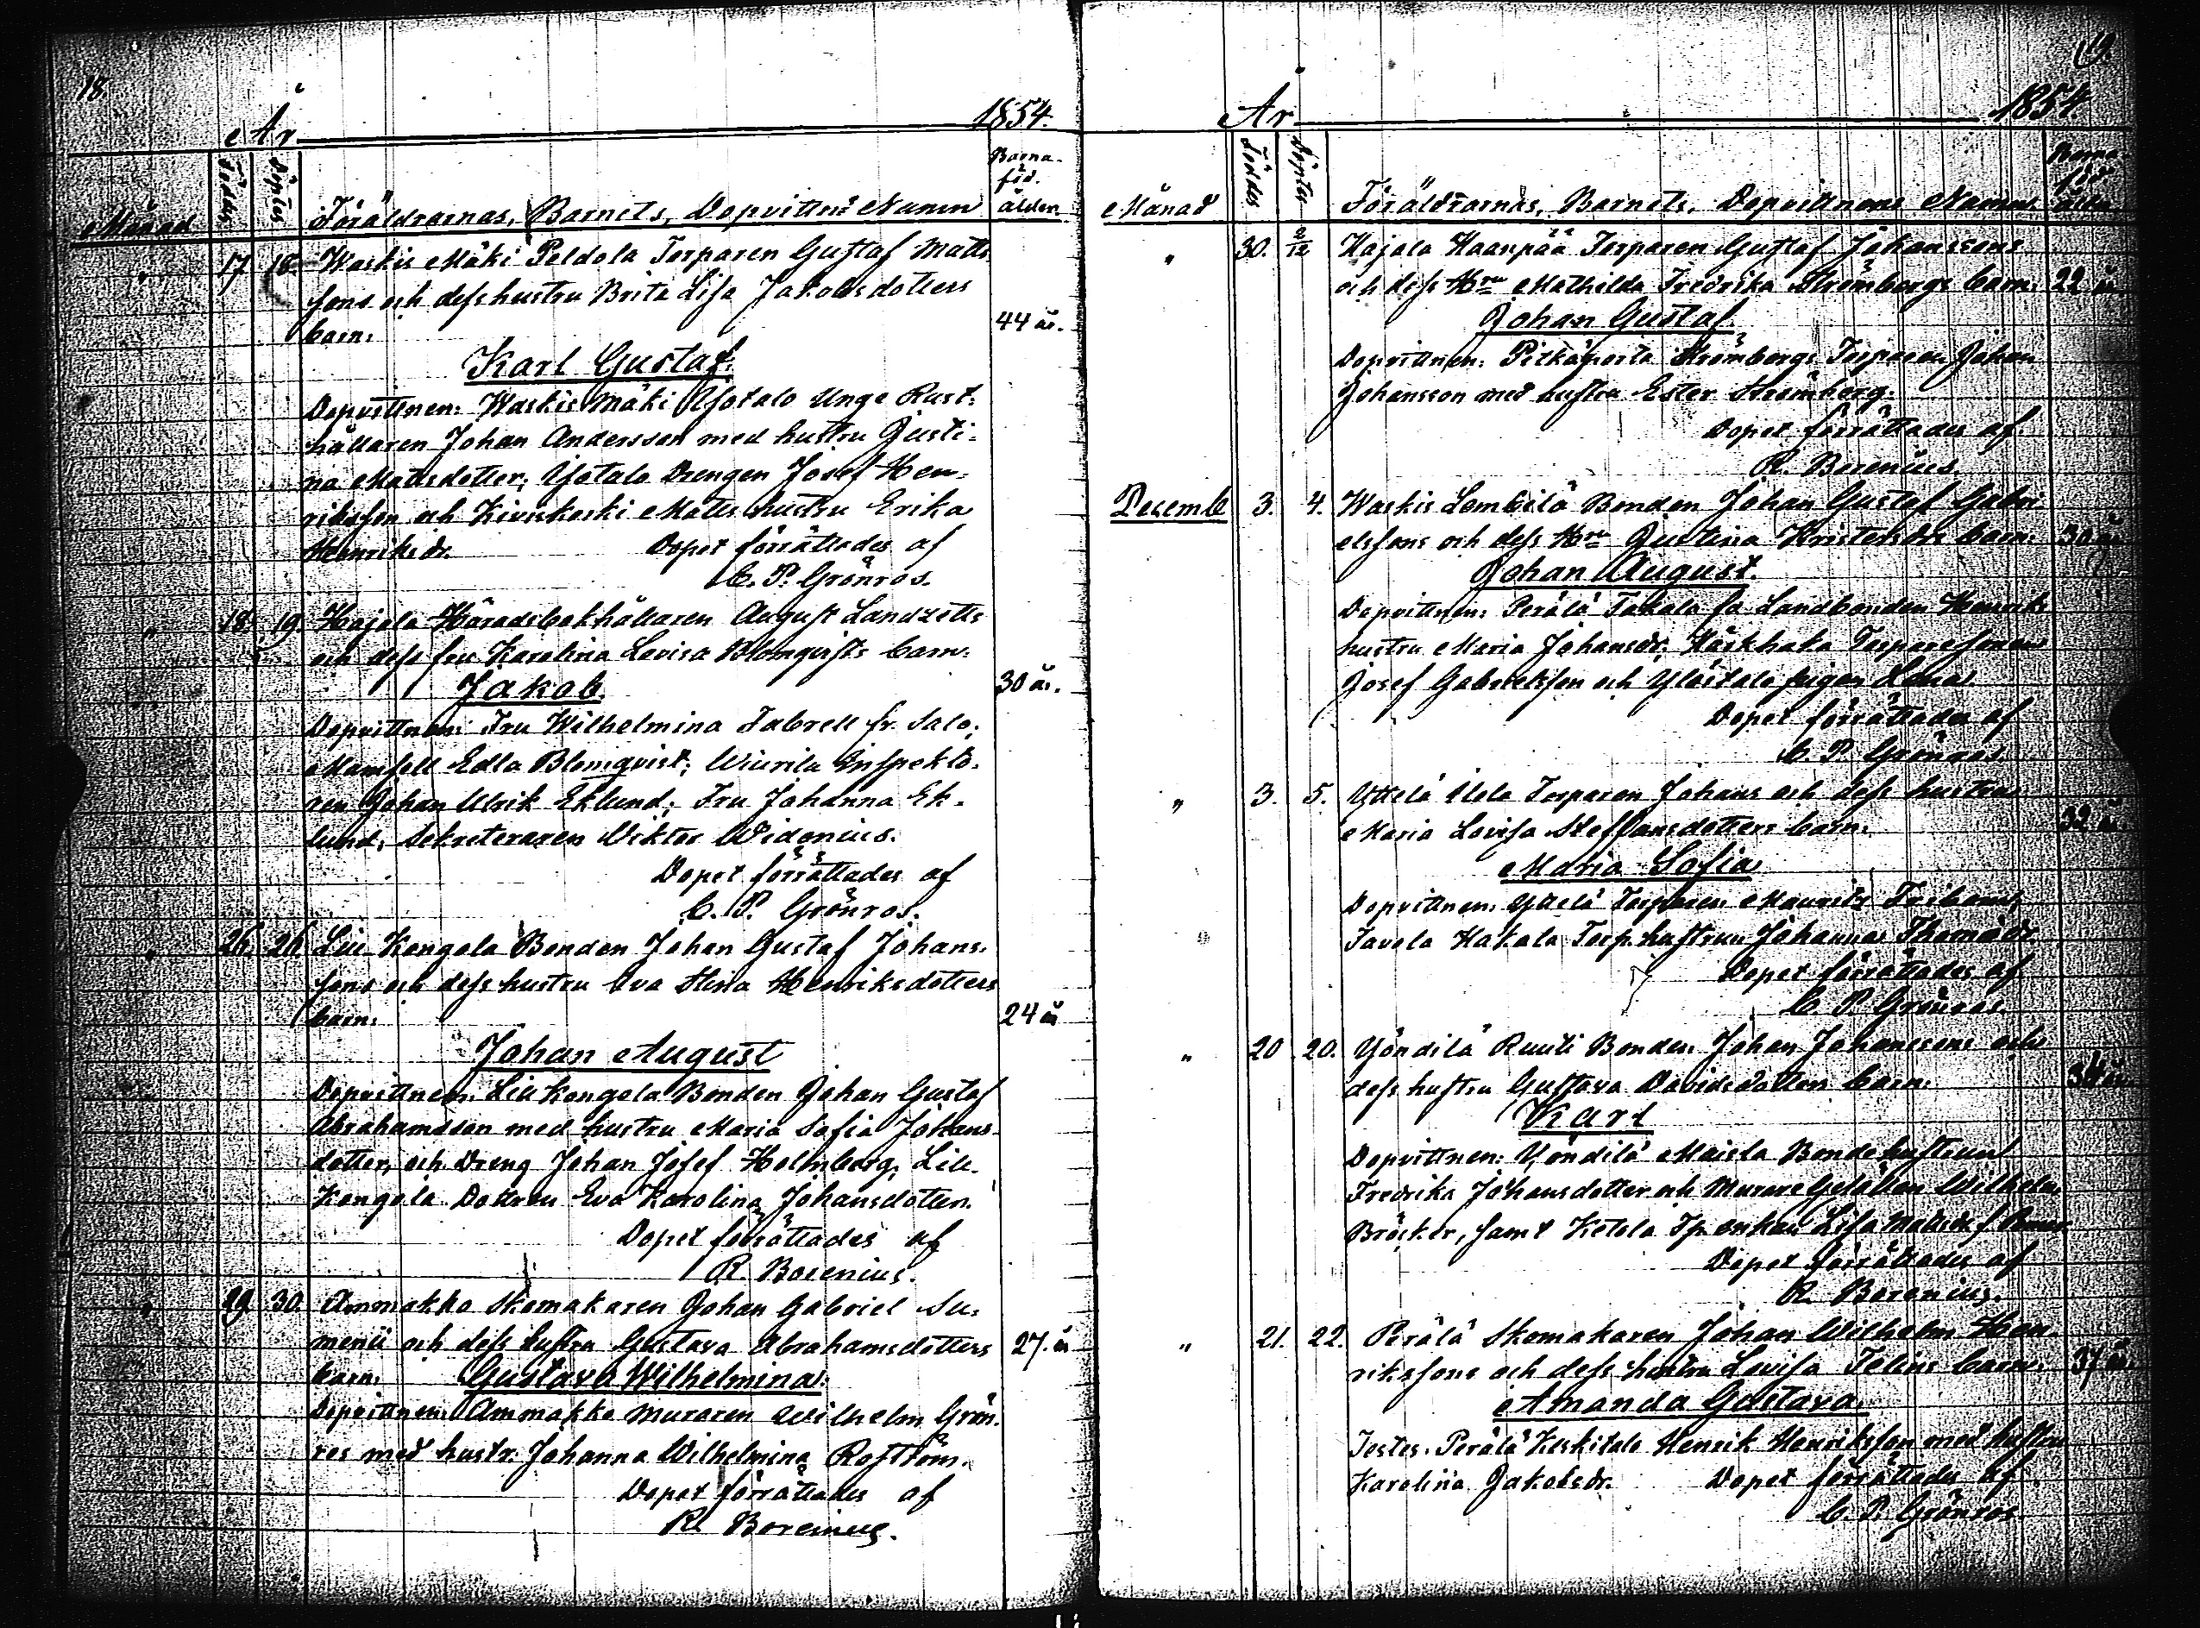 18.
År 1854.
Månad Föddes Döptes Föräldrarnas, Barnets, Dopvittns Namn Barna-föd. ålder.
" 17 18 Waskis Mäki Peldola Torparen Gustaf Matts
sons och dess hustru Brita Lisa Jakobsdotters
barn: 44 år.
Karl Gustaf.
Dopvittnen: Waskis Mäki Yotalo Unge Rust-
hållaren Johan Andersson med hustru Justi-
na Mattsdotter; Yotalo Drengen Josef Hen-
riksson och Kivikoski Matts hustru Erika
Henriksdr. Dopet förrättades af
C. P. Grönros.
" 18 19 Hajala Häradsbokhållaren August Landzetts
och dess fru Karolina Lovisa Blomqvists barn:
Jakob. 30 år.
Dopvittnen: Fru Wilhelmina Tabrell fr. Salo;
Mamsell Edla Blomqvist; Wiurila Inspekto-
ren Johan Ulrik Eklund; Fru Johanna Ek-
lund, Sekreteraren Viktor Widenius.
Dopet förrättades af
C. P. Grönros.
" 26 26 Liu Kangola Bonden Johan Gustaf Johans-
sons och dess hustru Eva Stina Henriksdotters
barn: 24 år
Johan August
Dopvittnen: Liu Kangola Bonden Johan Gustaf
Abrahamsson med hustru Maria Sofia Johans-
dotter, och Dreng Johan Josef Holmberg, Liu
Kangola Dottren Eva Karolina Johansdotter.
Dopet förrättades af
R. Borenius.
" 29 30. Ammakko Skomakaren Johan Gabriel Su-
menii och dess hustru Gustava Abrahamsdotters 27. år
barn: Gustava Wilhelmina.
Dopvittnen: Ammakko Muraren Wilhelm Grön-
ros med hustr. Johanna Wilhelmina Roström.
Dopet förrättades af
R. Borenius.
19.
År 1854.
Månad Föddes Döptes Föräldrarnas, Barnets, Dopvittnens Namn. Barna föd ålder
" 30. 2/12 Hajala Haanpää Torparen Gustaf Johanssons
och dess Hru Mathilda Fredrika Strömbergs barn: 22 år
Johan Gustaf.
Dopvittnen: Pitkäporta Strömbergs Torparen Johan
Johansson med hustru Ester Strömberg.
Dopet förrättades af
R. Borenius.
Decemb 3. 4. Waskis Lembilä Bonden Johan Gustaf Gabri-
elssons och dess Hru Justina Kristersdrs barn: 30 år
Johan August.
Dopvittnen: Perälä Takala fd Landbonden Henriks
hustru Maria Johansdr; Häskhaka Torparesonen
Josef Gabrielsson och Ylöstalo pigan Lena
Dopet förrättades af
C. P. Grönros.
" 3. 5. Yttelä Ilola Torparen Johans och dess hustru
Maria Lovisa Steffansdotters barn: 32 år
Maria Sofia
Dopvittnen: Yttelä Torparen Mauritz
Tavola Hakala Torp. hustrun Johanna Thomädr.
Dopet förrättades af
C. P. Grönros.
" 20 20. Yöndilä Ruuti Bonden Johan Johanssons och
dess hustru Gustava Davidsdotters barn: 34 år
Karl
Dopvittnen: Yöndilä Maisla Bondehustrun
Fredrika Johansdotter och Murare Gesällen Wilhelm
Bröcker, samt Ketola Lisa Mattsdr
Dopet förrättades af
R. Borenius.
" 21. 22. Perälä Skomakaren Johan Wilhelm Hen-
rikssons och dess hustru Lovisa Telins barn: 37 år
Amanda Gustava.
Testes: Perälä Keskitalo Henrik Henriksson med hustru
Karolina Jakobsdr. Dopet förrättades af
C. P. Grönros.